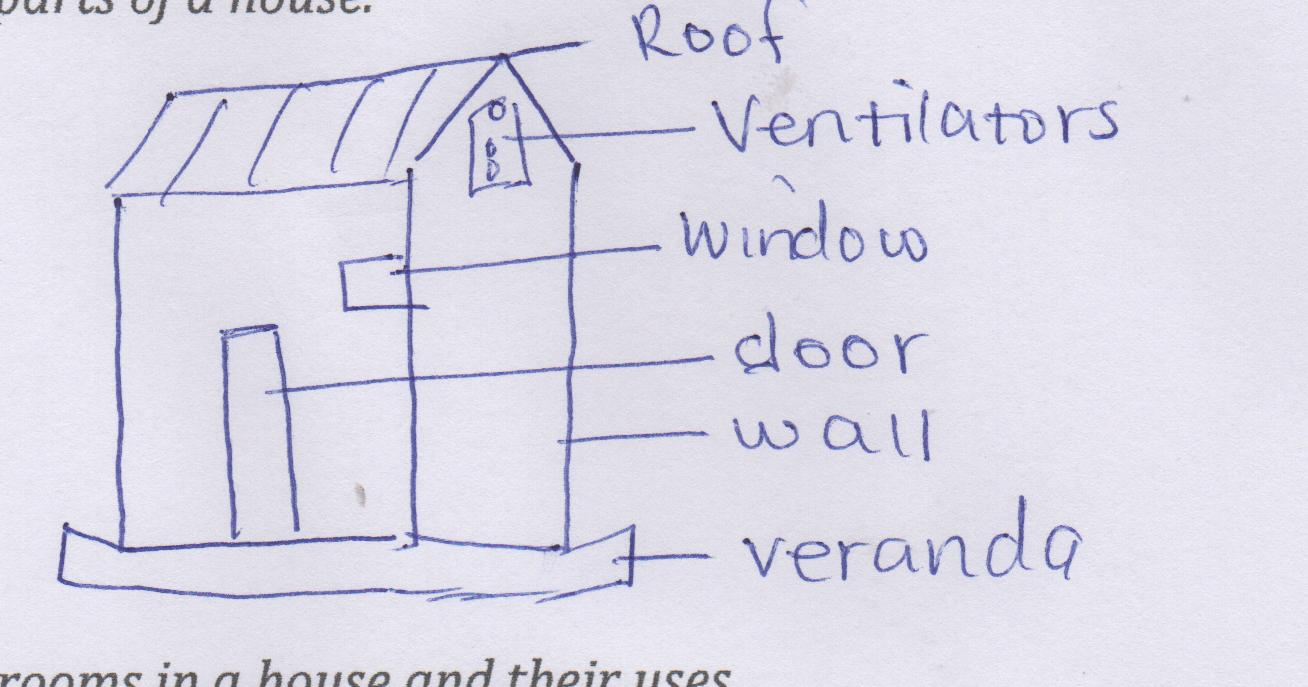 parts of a house.
Roof
Ventilators
Window
door
wall
veranda
rooms in a house and their uses